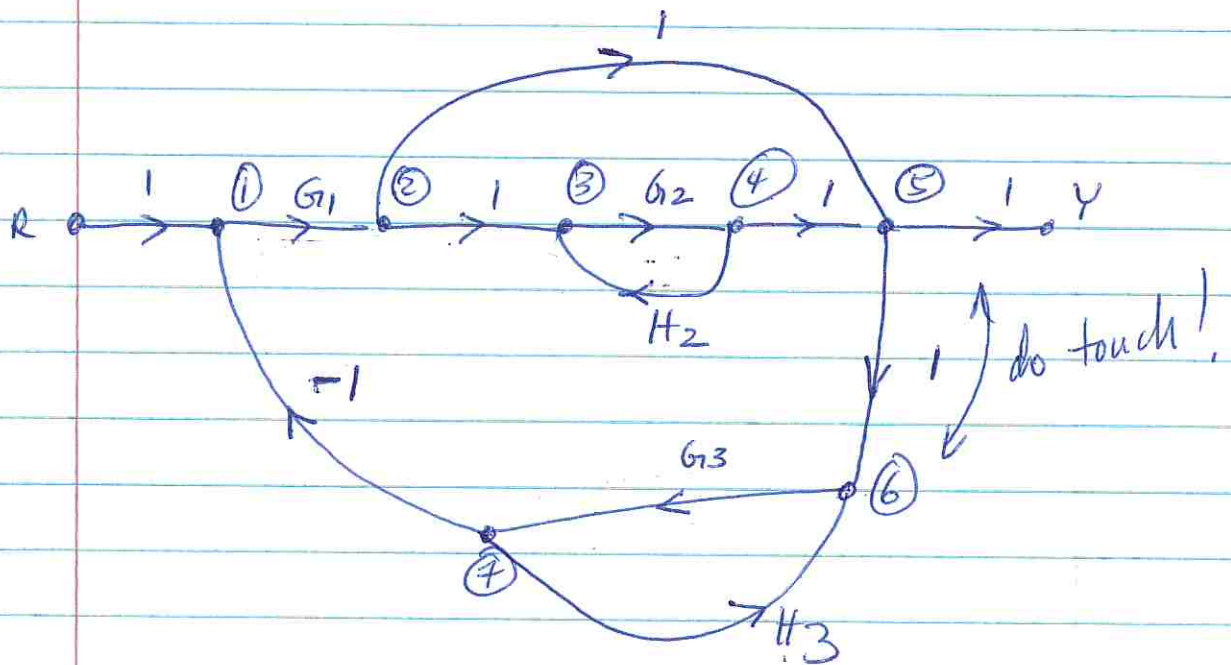 1
1 ① G1 ② 1 ③ G2 ④ 1 ⑤ 1 Y
R
H2
1 do touch!
-1
G3
⑥
⑦
H3